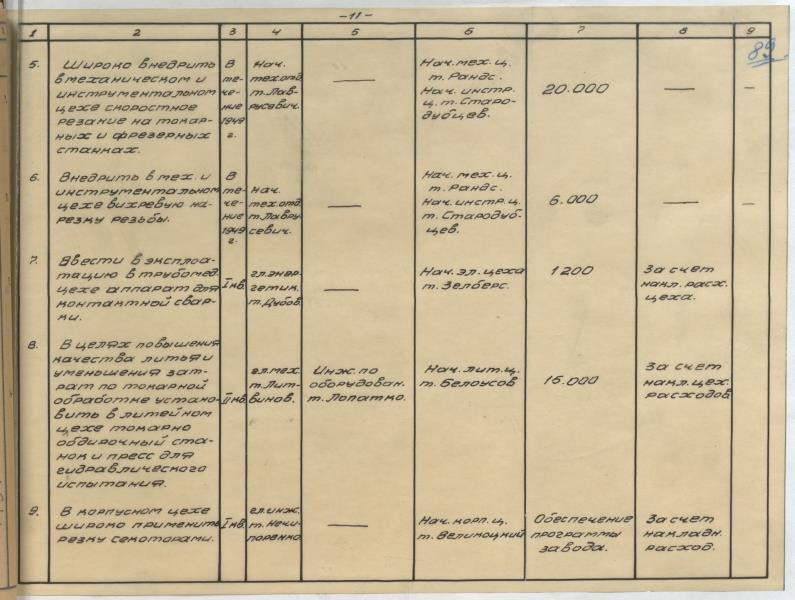 -11-
89
1 2 3 4 5 6 7 8 9
5. Широко внедрить
в механическом и
инструментальном
цехе скоростное
резание на токар-
ных и фрезерных
станках.
В
те-
че-
ние
1949
г.
Нач.
тех.отд.
т. Лав-
русевич.
—
Нач. мех. ц.
т. Рандс.
Нач. инстр.
ц. т. Старо-
дубцев.
20.000
—
—
6. Внедрить в мех. и
инструментальном
цехе вихревую на-
резку резьбы.
В
те-
че-
ние
1949
г.
Нач.
тех.отд.
т. Лавру-
севич.
—
Нач. мех. ц.
т. Рандс.
Нач. инстр. ц.
т. Стародуб-
цев.
6.000
—
—
7. Ввести в эксплоа-
тацию в трубомед.
цехе аппарат для
контактной свар-
ки.
I кв.
гл. энер-
гетик.
т. Дубов.
—
Нач. эл. цеха
т. Зелберс.
1200
За счет
накл. расх.
цеха.
8. В целях повышения
качества литья и
уменьшения зат-
рат по токарной
обработке устано-
вить в литейном
цехе токарно
обдирочный ста-
нок и пресс для
гидравлического
испытания.
II кв.
гл. мех.
т. Лит-
винов.
Инж. по
оборудован.
т. Лопатко.
Нач. лит. ц.
т. Белоусов
15.000
За счет
накл. цех.
расходов.
9. В корпусном цехе
широко применить
резку секоторами.
I кв.
гл. инж.
т. Нечи-
поренко.
—
Нач. корп. ц.
т. Великоцкий
Обеспечение
программы
завода.
За счет
накладн.
расход.